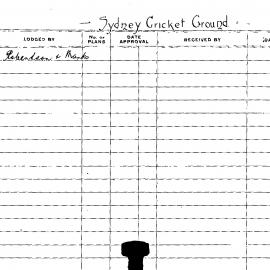 — Sydney Cricket Ground .
LODGED BY No. OF PLANS DATE APPROVAL RECEIVED BY
Robertson & Marks